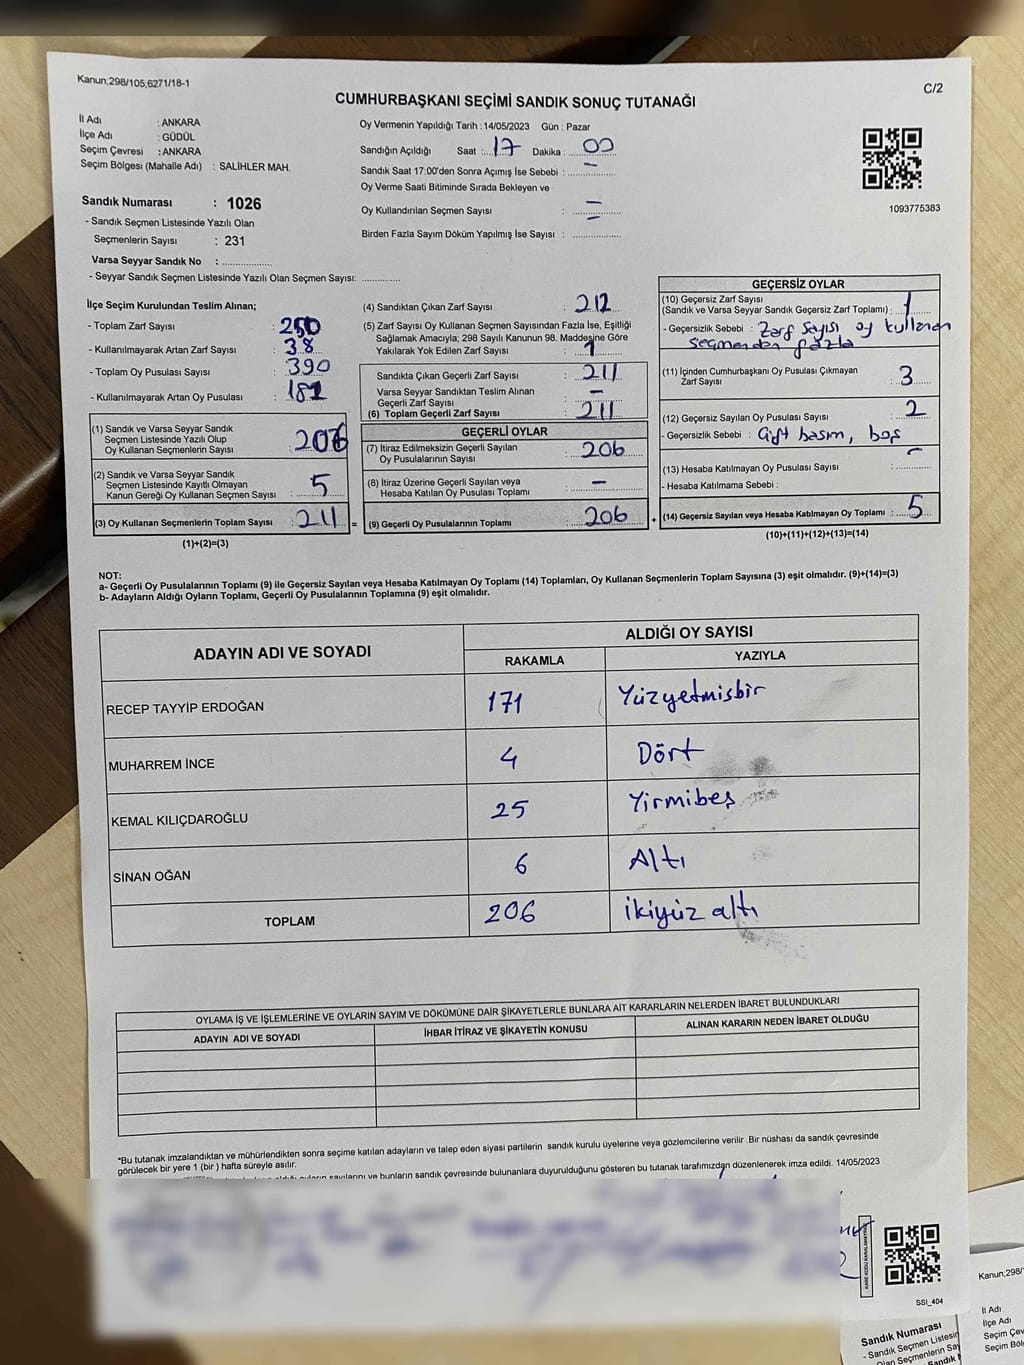 Kanun,298/105,6271/18-1
C/2
CUMHURBAŞKANI SEÇİMİ SANDIK SONUÇ TUTANAĞI
İl Adı : ANKARA
İlçe Adı : GÜDÜL
Seçim Çevresi : ANKARA
Seçim Bölgesi (Mahalle Adı) : SALİHLER MAH.
Sandık Numarası : 1026
- Sandık Seçmen Listesinde Yazılı Olan
Seçmenlerin Sayısı : 231
Varsa Seyyar Sandık No :
- Seyyar Sandık Seçmen Listesinde Yazılı Olan Seçmen Sayısı:
Oy Vermenin Yapıldığı Tarih :14/05/2023 Gün : Pazar
Sandığın Açıldığı Saat : 17 Dakika : 00
Sandık Saat 17:00'den Sonra Açımış İse Sebebi : -
Oy Verme Saati Bitiminde Sırada Bekleyen ve
Oy Kullandırılan Seçmen Sayısı : -
Birden Fazla Sayım Döküm Yapılmış İse Sayısı : -
1093775383
İlçe Seçim Kurulundan Teslim Alınan;
- Toplam Zarf Sayısı : 250
- Kullanılmayarak Artan Zarf Sayısı : 38
- Toplam Oy Pusulası Sayısı : 390
- Kullanılmayarak Artan Oy Pusulası :
(1) Sandık ve Varsa Seyyar Sandık
Seçmen Listesinde Yazılı Olup
Oy Kullanan Seçmenlerin Sayısı : 206
(2) Sandık ve Varsa Seyyar Sandık
Seçmen Listesinde Kayıtlı Olmayan
Kanun Gereği Oy Kullanan Seçmen Sayısı : 5
(3) Oy Kullanan Seçmenlerin Toplam Sayısı : 211 =
(1)+(2)=(3)
(4) Sandıktan Çıkan Zarf Sayısı : 212
(5) Zarf Sayısı Oy Kullanan Seçmen Sayısından Fazla İse, Eşitliği
Sağlamak Amacıyla; 298 Sayılı Kanunun 98. Maddesine Göre
Yakılarak Yok Edilen Zarf Sayısı : 1
Sandıkta Çıkan Geçerli Zarf Sayısı : 211
Varsa Seyyar Sandıktan Teslim Alınan
Geçerli Zarf Sayısı : -
(6) Toplam Geçerli Zarf Sayısı : 211
GEÇERLİ OYLAR
(7) İtiraz Edilmeksizin Geçerli Sayılan
Oy Pusulalarının Sayısı : 206
(8) İtiraz Üzerine Geçerli Sayılan veya
Hesaba Katılan Oy Pusulası Toplamı : -
(9) Geçerli Oy Pusulalarının Toplamı : 206 +
GEÇERSİZ OYLAR
(10) Geçersiz Zarf Sayısı
(Sandık ve Varsa Seyyar Sandık Geçersiz Zarf Toplamı) : 1
- Geçersizlik Sebebi : Zarf sayısı oy kullanan
seçmenden fazla
(11) İçinden Cumhurbaşkanı Oy Pusulası Çıkmayan
Zarf Sayısı : 3
(12) Geçersiz Sayılan Oy Pusulası Sayısı : 2
- Geçersizlik Sebebi : Çift basım, boş
(13) Hesaba Katılmayan Oy Pusulası Sayısı : -
- Hesaba Katılmama Sebebi :
(14) Geçersiz Sayılan veya Hesaba Katılmayan Oy Toplamı : 5
(10)+(11)+(12)+(13)=(14)
NOT:
a- Geçerli Oy Pusulalarının Toplamı (9) ile Geçersiz Sayılan veya Hesaba Katılmayan Oy Toplamı (14) Toplamları, Oy Kullanan Seçmenlerin Toplam Sayısına (3) eşit olmalıdır. (9)+(14)=(3)
b- Adayların Aldığı Oyların Toplamı, Geçerli Oy Pusulalarının Toplamına (9) eşit olmalıdır.
ADAYIN ADI VE SOYADI
ALDIĞI OY SAYISI
RAKAMLA YAZIYLA
RECEP TAYYİP ERDOĞAN 171 Yüzyetmişbir
MUHARREM İNCE 4 Dört
KEMAL KILIÇDAROĞLU 25 Yirmibeş
SİNAN OĞAN 6 Altı
TOPLAM 206 ikiyüz altı
OYLAMA İŞ VE İŞLEMLERİNE VE OYLARIN SAYIM VE DÖKÜMÜNE DAİR ŞİKAYETLERLE BUNLARA AİT KARARLARIN NELERDEN İBARET BULUNDUKLARI
ADAYIN ADI VE SOYADI İHBAR İTİRAZ VE ŞİKAYETİN KONUSU ALINAN KARARIN NEDEN İBARET OLDUĞU
*Bu tutanak imzalandıktan ve mühürlendikten sonra seçime katılan adayların ve talep eden siyasi partilerin sandık kurulu üyelerine veya gözlemcilerine verilir. Bir nüshası da sandık çevresinde
görülecek bir yere 1 (bir ) hafta süreyle asılır.
sayılarını ve bunların sandık çevresinde bulunanlara duyurulduğunu gösteren bu tutanak tarafımızdan düzenlenerek imza edildi. 14/05/2023
SSI_404
Kanun,298/
İl Adı
İlçe Adı
Seçim Çev
Seçim Böl
Sandık Numarası
- Sandık Seçmen Listesin